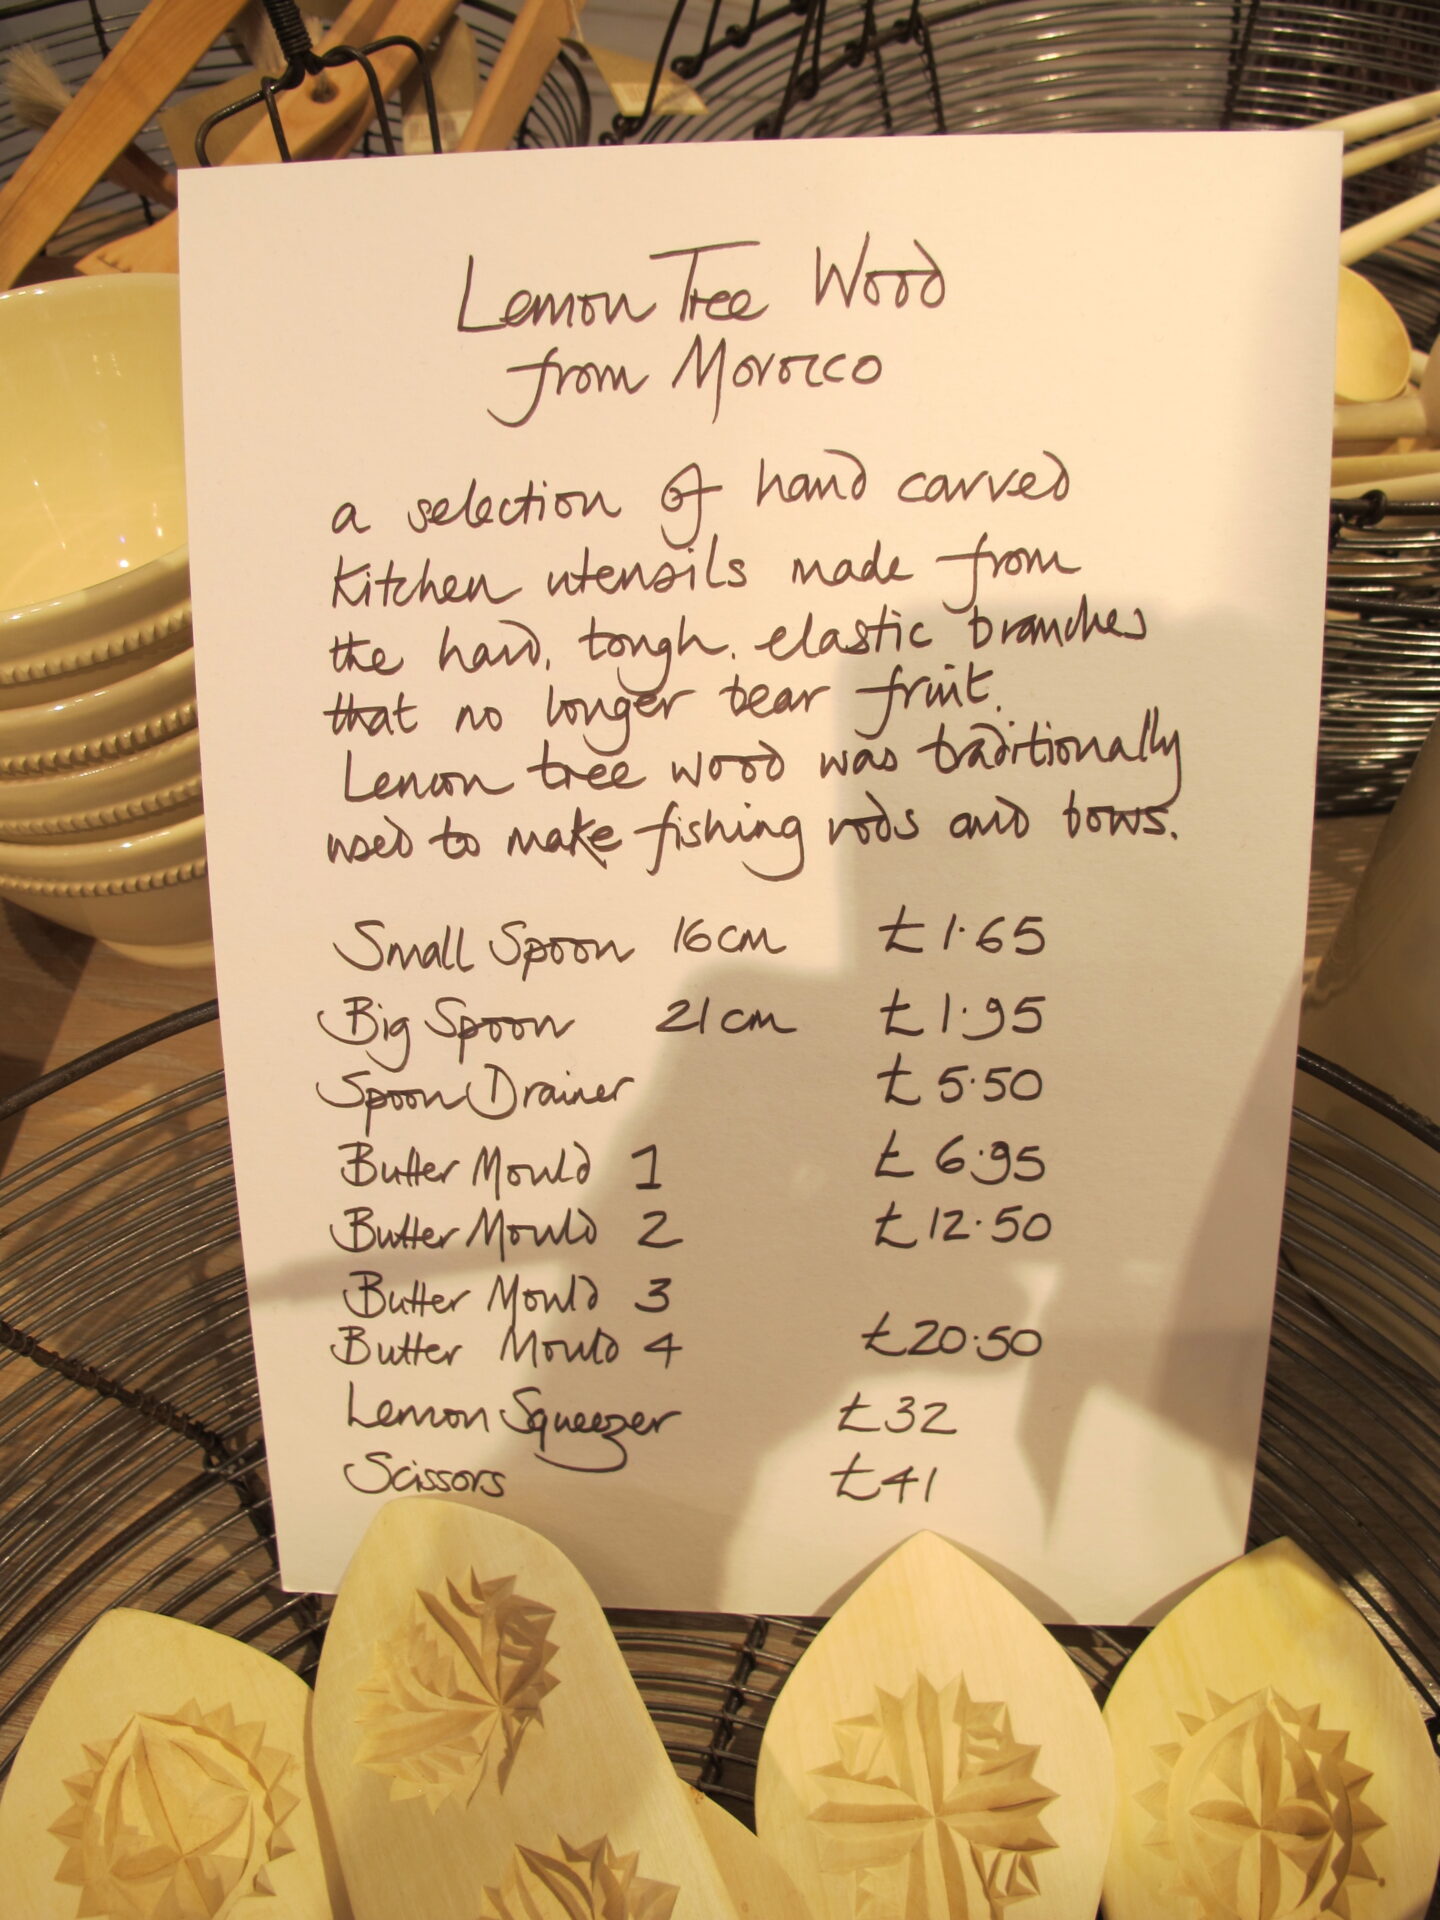 Lemon Tree Wood
from Morocco
a selection of hand carved
Kitchen utensils made from
the hard, tough, elastic branches
that no longer bear fruit.
Lemon tree wood was traditionally
used to make fishing rods and bows.
Small Spoon 16cm £1.65
Big Spoon 21cm £1.95
Spoon Drainer £5.50
Butter Mould 1 £6.95
Butter Mould 2 £12.50
Butter Mould 3
Butter Mould 4 £20.50
Lemon Squeezer £32
Scissors £41